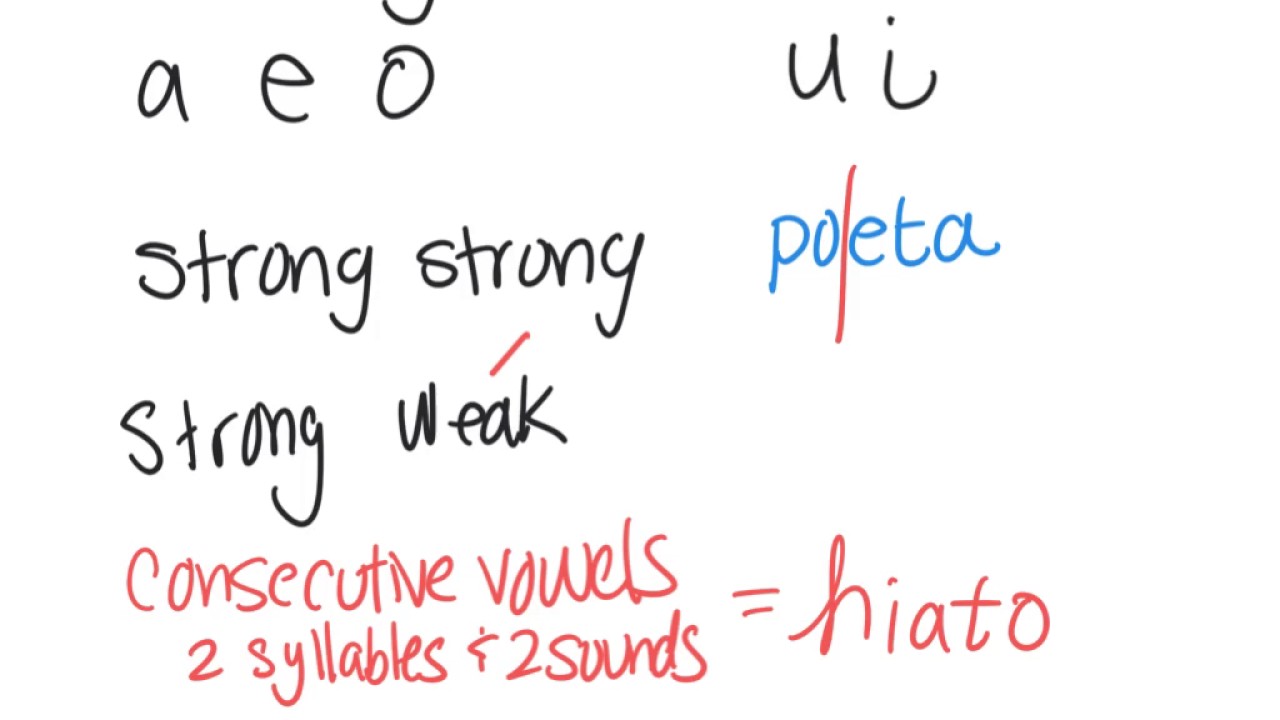 a e o u i
strong strong po|eta
strong weak
consecutive vowels = hiato
2 syllables & 2 sounds